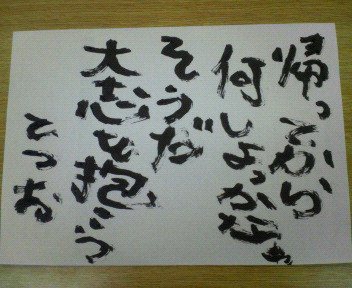 帰ってから
何しよっかなぁ
そうだ
大志を抱こう
とつお